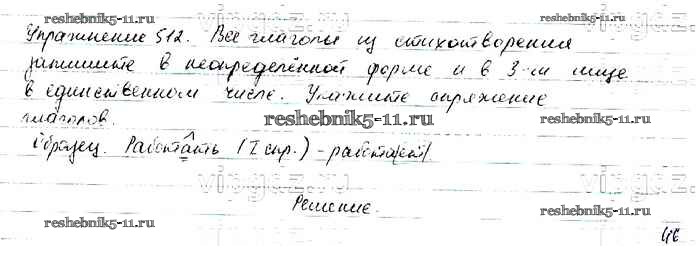 reshebnik5-11.ru reshebnik5-11.ru
Упражнение 512. Все глаголы из стихотворения
запишите в неопределённой форме и в 3-м лице
в единственном числе. Укажите спряжение
глаголов.
reshebnik5-11.ru
Образец. Работать (I спр.) - работает
vipgdz.ru
Решение.
reshebnik5-11.ru reshebnik5-11.ru